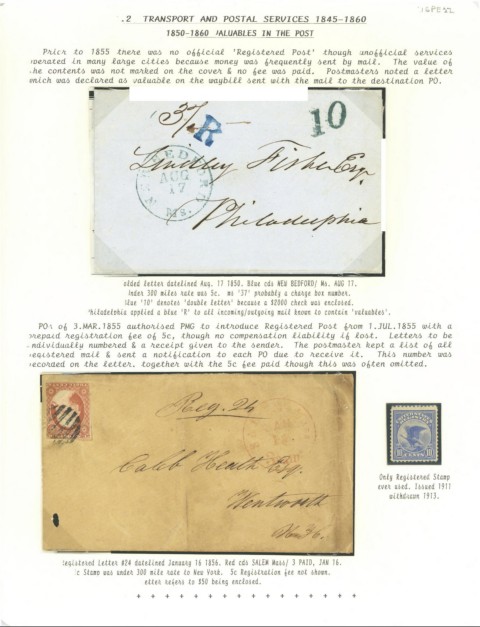 16PE32
.2 TRANSPORT AND POSTAL SERVICES 1845-1860
1850-1860 VALUABLES IN THE POST
Prior to 1855 there was no official 'Registered Post' though unofficial services
operated in many large cities because money was frequently sent by mail. The value of
the contents was not marked on the cover & no fee was paid. Postmasters noted a letter
which was declared as valuable on the waybill sent with the mail to the destination PO.
37/
R
10
NEW BEDFORD
AUG
17
Ms.
Lindley Fisher Esq.
Philadelphia
olded letter datelined Aug. 17 1850. Blue cds NEW BEDFORD/ Ms. AUG 17.
Under 300 miles rate was 5c. ms '37' probably a charge box number.
Blue '10' denotes 'double letter' because a $2000 check was enclosed.
Philadelphia applied a blue 'R' to all incoming/outgoing mail known to contain 'valuables'.
POs of 3.MAR.1855 authorised PMG to introduce Registered Post from 1.JUL.1855 with a
prepaid registration fee of 5c, though no compensation liability if lost. Letters to be
individually numbered & a receipt given to the sender. The postmaster kept a list of all
registered mail & sent a notification to each PO due to receive it. This number was
recorded on the letter, together with the 5c fee paid though this was often omitted.
Reg. 24
JAN
Caleb Heath Esq.
Wentworth
10 10
Only Registered Stamp
ever used. Issued 1911
withdrawn 1913.
egistered Letter #24 datelined January 16 1856. Red cds SALEM Mass/ 3 PAID, JAN 16.
3c Stamp was under 300 mile rate to New York. 5c Registration fee not shown.
etter refers to $50 being enclosed.
+ + + + + + + + + + + + + + + +